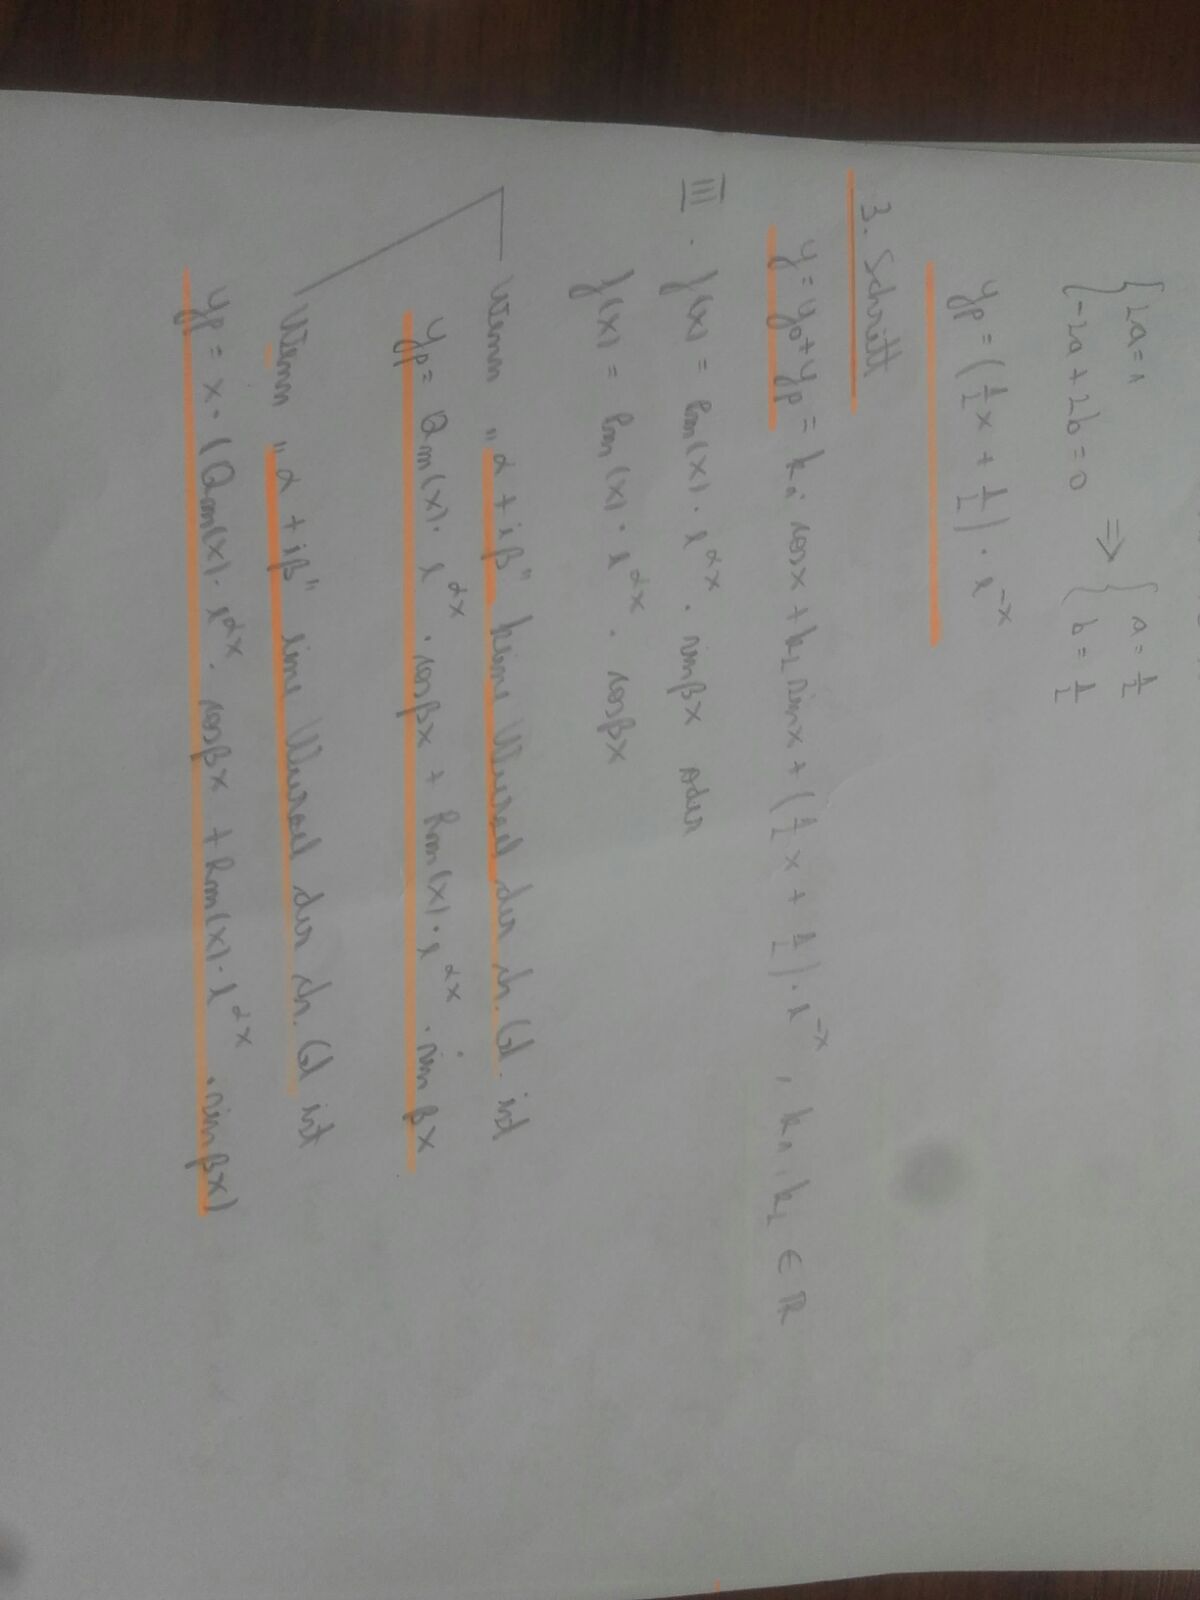 { 2a = 1
{ -2a + 2b = 0 ⇒ { a = 1/2
{ b = 1/2
yp = (1/2 x + 1/2) · e^-x
3. Schritt
y = y0 + yp = k1 · cosx + k2 sinx + (1/2 x + 1/2) · e^-x , k1, k2 ∈ ℝ
III. f(x) = Pm(x) · e^αx · sinβx oder
f(x) = Pm(x) · e^αx · cosβx
Wenn „α + iβ" keine Wurzel der ch. Gl. ist
yp = Qm(x) · e^αx · cosβx + Rm(x) · e^αx · sin βx
Wenn „α + iβ" eine Wurzel der ch. Gl ist
yp = x · (Qm(x) · e^αx · cosβx + Rm(x) · e^αx · sinβx)